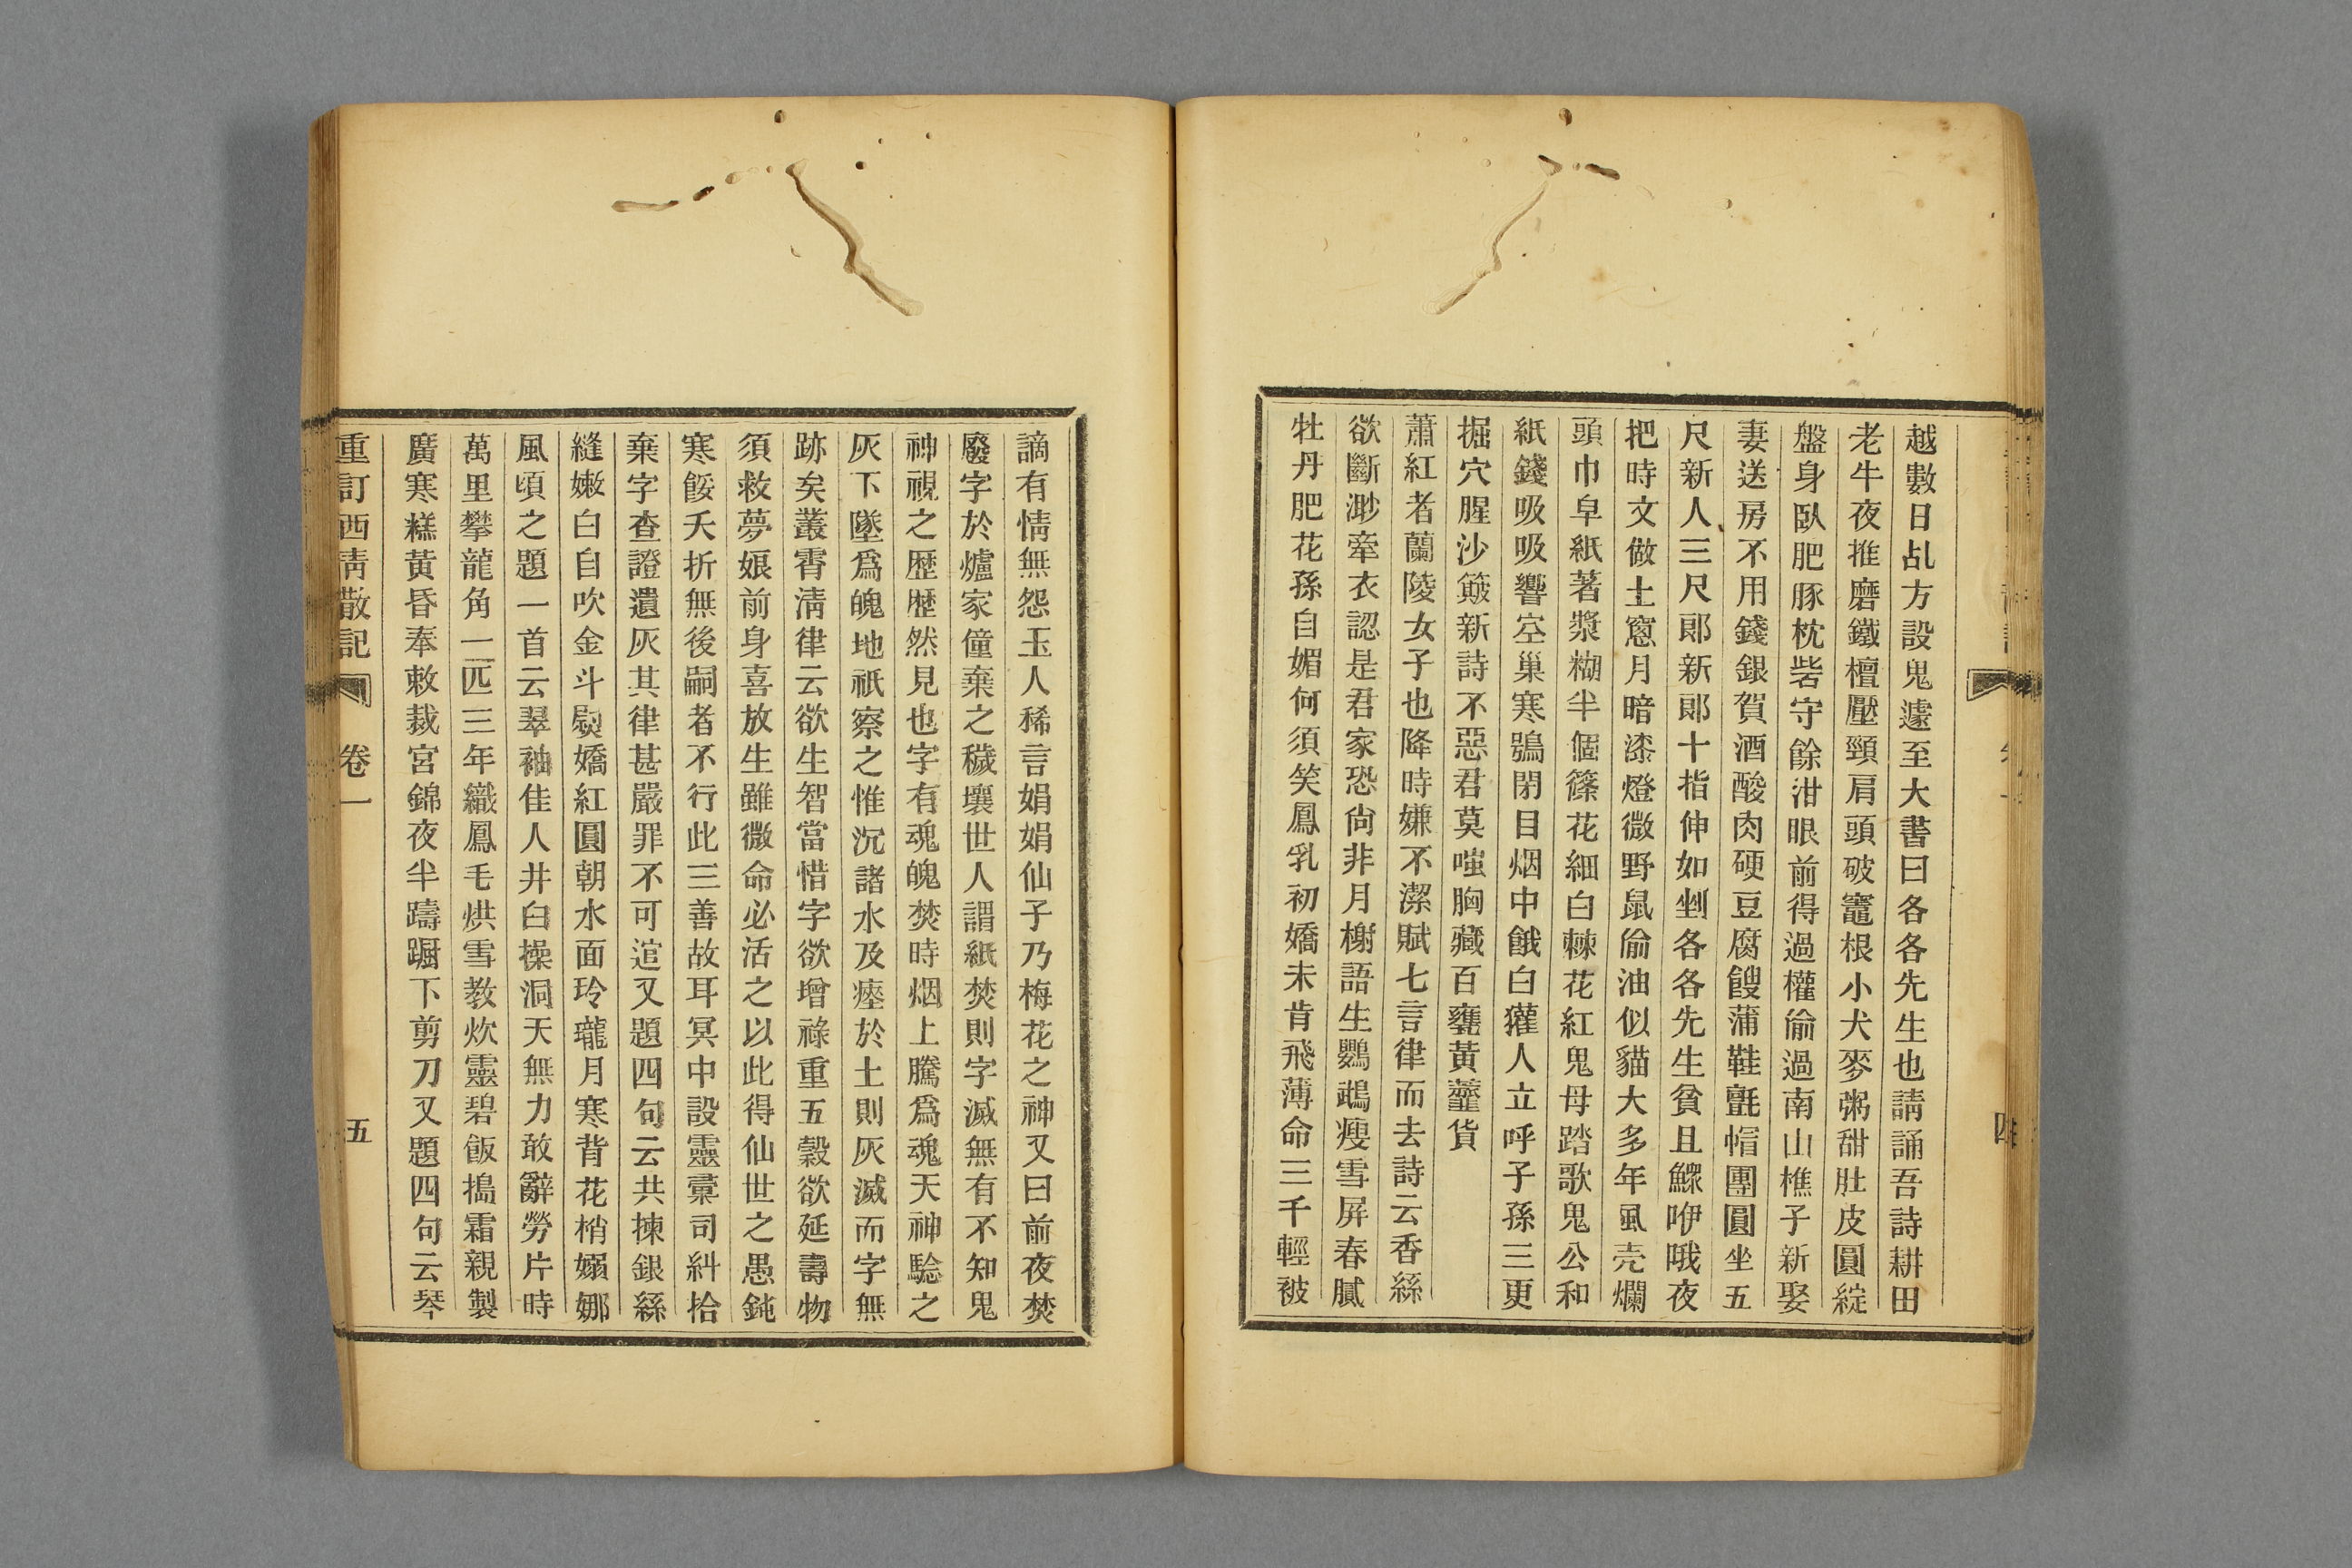 越數日乩方設鬼遽至大書曰各各先生也請誦吾詩耕田
老牛夜推磨鐵檀壓頸肩頭破竈根小犬麥粥甜肚皮圓綻
盤身臥肥豚枕砦守餘泔眼前得過權偷過南山樵子新娶
妻送房不用錢銀賀酒酸肉硬豆腐餿蒲鞋氈帽團圓坐五
尺新人三尺郎新郎十指伸如剉各各先生貧且鰥咿哦夜
把時文做土窻月暗漆燈微野鼠偷油似貓大多年風壳爛
頭巾阜紙著漿糊半個篠花細白棘花紅鬼母踏歌鬼公和
紙錢吸吸響空巢寒鴞閉目烟中餓白獾人立呼子孫三更
掘穴腥沙簸新詩不惡君莫嗤胸藏百甕黃虀貨
蕭紅者蘭陵女子也降時嫌不潔賦七言律而去詩云香絲
欲斷渺牽衣認是君家恐尙非月榭語生鸚鵡瘦雪屏春膩
牡丹肥花孫自媚何須笑鳳乳初嬌未肯飛薄命三千輕被
四
謫有情無怨玉人稀言娟娟仙子乃梅花之神又曰前夜焚
廢字於爐家僮棄之穢壤世人謂紙焚則字滅無有不知鬼
神視之歷歷然見也字有魂魄焚時烟上騰爲魂天神驗之
灰下墜爲魄地祇察之惟沉諸水及瘞於土則灰滅而字無
跡矣叢霄淸律云欲生智當惜字欲增祿重五穀欲延壽物
須救夢娘前身喜放生雖微命必活之以此得仙世之愚鈍
寒餒夭折無後嗣者不行此三善故耳冥中設靈橐司糾拾
棄字查證遺灰其律甚嚴罪不可逭又題四句云共揀銀絲
縫嫩白自吹金斗熨嬌紅圓朝水面玲瓏月寒背花梢嫋娜
風頃之題一首云翠袖佳人井臼操洞天無力敢辭勞片時
萬里攀龍角一匹三年織鳳毛烘雪教炊靈碧飯搗霜親製
廣寒糕黃昏奉敕裁宮錦夜半躊躕下剪刀又題四句云琴
重訂西靑散記 卷一 五